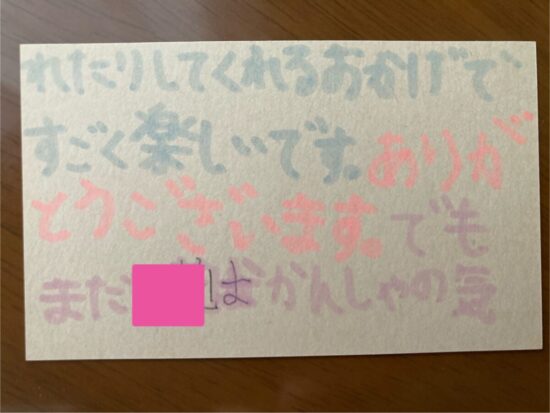 れたりしてくれるおかげで
すごく楽しいです。ありが
とうございます。でも
まだ はかんしゃの気